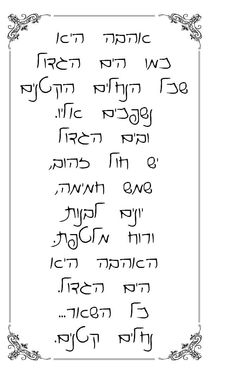 אהבה היא
כמו הים הגדול
שכל הנחלים הקטנים
נשפכים אליו.
ובים הגדול
יש חול זהוב,
שמש חמימה,
יונים לבנות,
ורוח מלטפת.
האהבה היא
הים הגדול.
כל השאר...
נחלים קטנים.